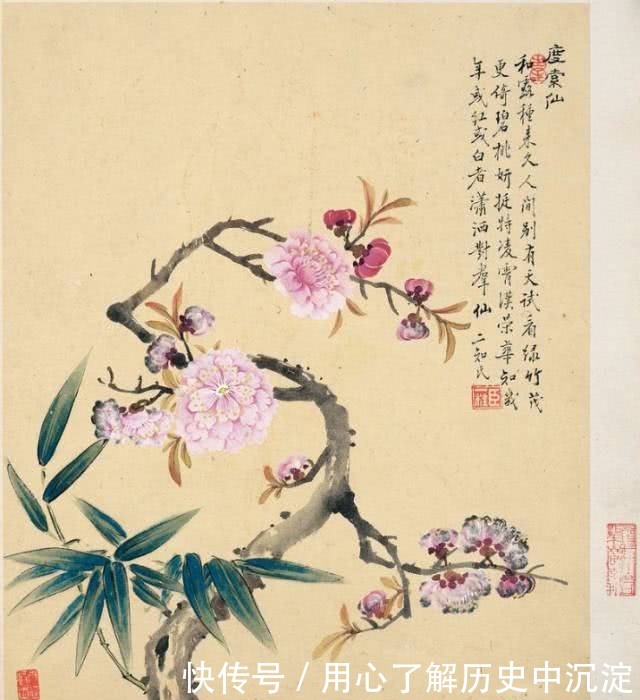 度索仙
和露種來久人間別有天試看綠竹茂
更倚碧桃妍挺特凌霄漢榮華知幾
年或紅或白者瀟洒對羣仙 二知
快传号 / 用心了解历史中沉淀